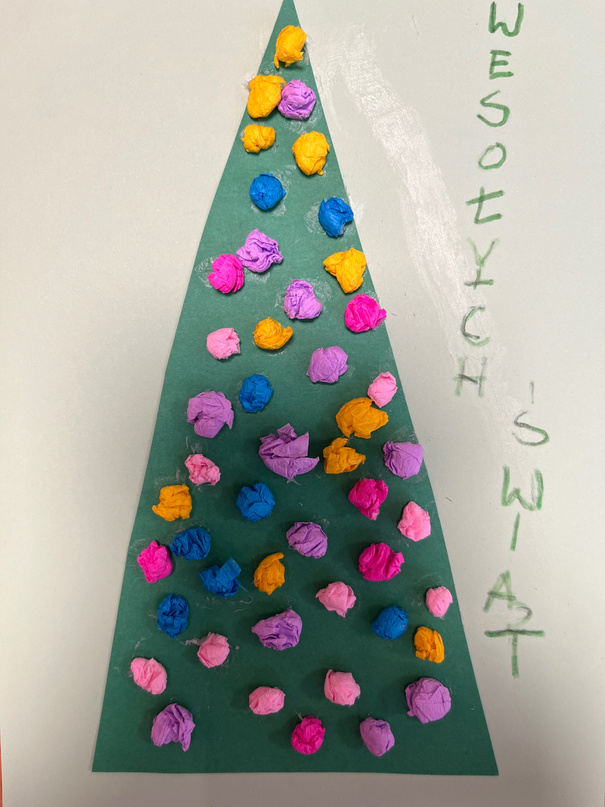 WESOŁYCH
ŚWIĄT